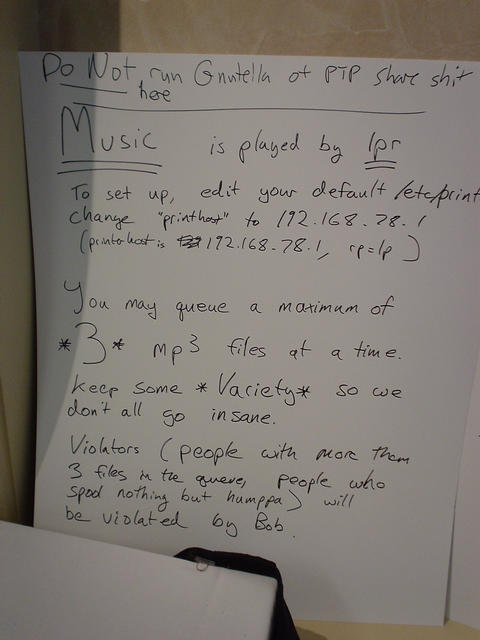 Do Not run Gnutella of PTP share shit
here
Music is played by lpr
To set up, edit your default /etc/print
change "printhost" to 192.168.78.1
(printerhost is 192.168.78.1, rp=lp)
You may queue a maximum of
*3* mp3 files at a time.
keep some *Variety* so we
don't all go insane.
Violators (people with more them
3 files in the queue, people who
spool nothing but humppa) will
be violated by Bob.